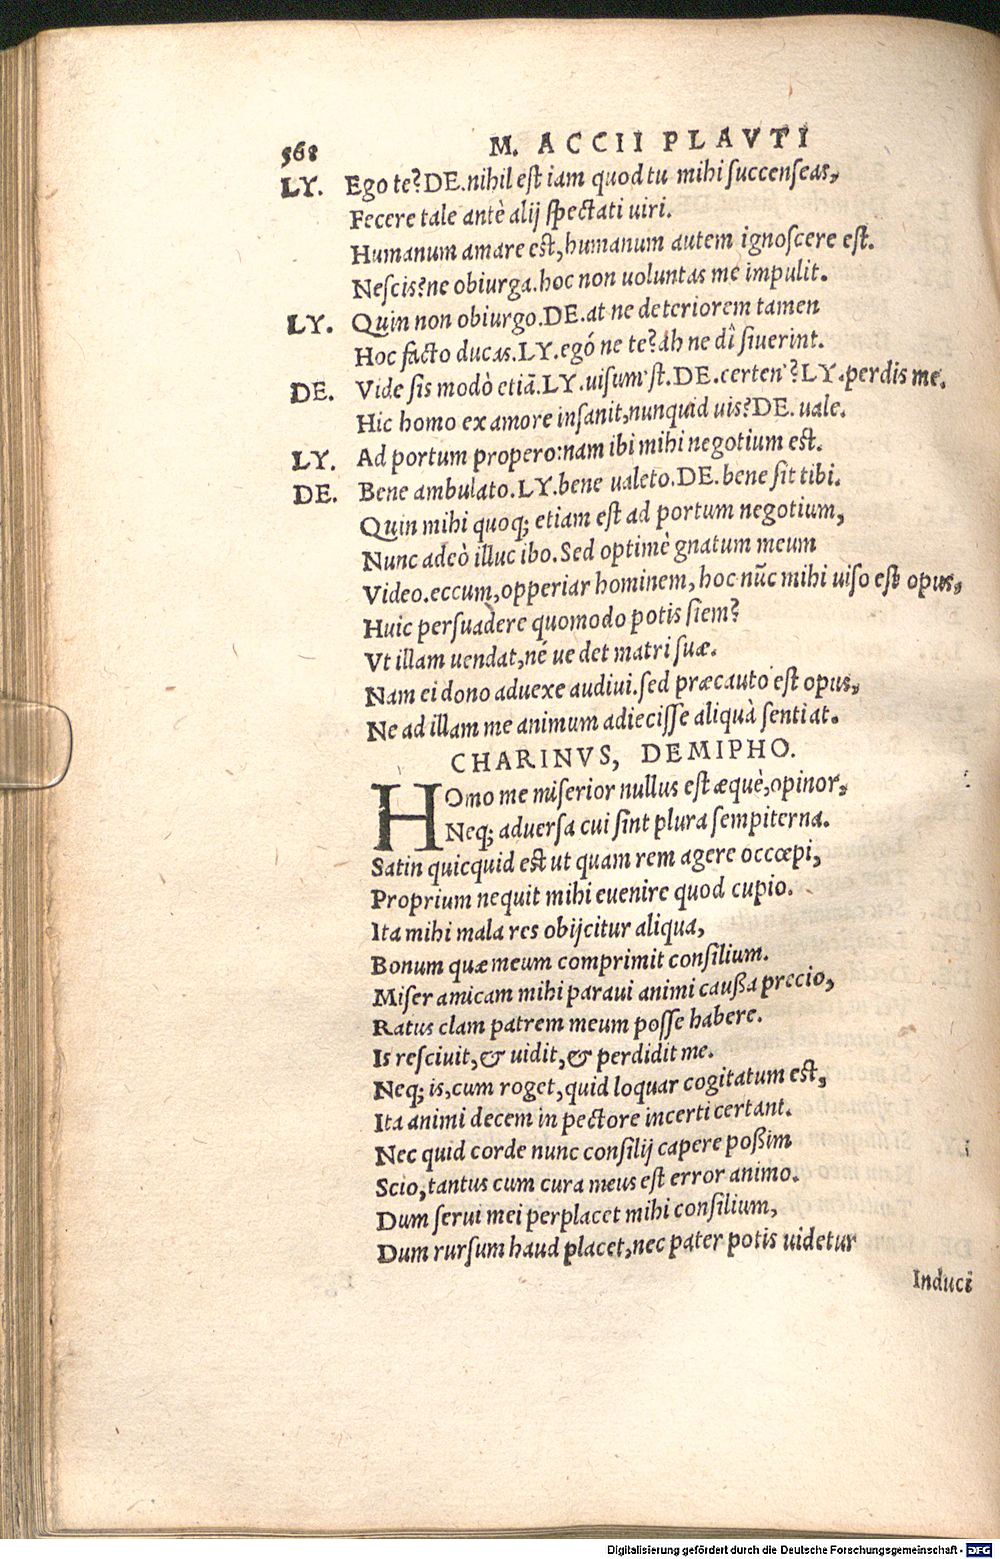 568 M. ACCII PLAVTI
LY. Ego te? DE. nihil est iam quod tu mihi succenseas,
Fecere tale antè alij spectati uiri.
Humanum amare est, humanum autem ignoscere est.
Nescis? ne obiurga. hoc non uoluntas me impulit.
LY. Quin non obiurgo. DE. at ne deteriorem tamen
Hoc facto ducas. LY. egó ne te? ah ne dî siuerint.
DE. Vide sis modò etiã. LY. uisum'st. DE. certen'? LY. perdis me.
Hic homo ex amore insanit, nunquid uis? DE. uale.
LY. Ad portum propero: nam ibi mihi negotium est.
DE. Bene ambulato. LY. bene ualeto. DE. bene sit tibi.
Quin mihi quoq; etiam est ad portum negotium,
Nunc adeò illuc ibo. Sed optimè gnatum meum
Video. eccum, opperiar hominem, hoc nũc mihi uiso est opus,
Huic persuadere quomodo potis siem?
Vt illam uendat, né ue det matri suæ.
Nam ei dono aduexe audiui. sed præcauto est opus,
Ne ad illam me animum adiecisse aliquà sentiat.
CHARINVS, DEMIPHO.
HOmo me miserior nullus est æquè, opinor,
Neq; aduersa cui sint plura sempiterna.
Satin quicquid est ut quam rem agere occœpi,
Proprium nequit mihi euenire quod cupio.
Ita mihi mala res obijcitur aliqua,
Bonum quæ meum comprimit consilium.
Miser amicam mihi paraui animi caußa precio,
Ratus clam patrem meum posse habere.
Is resciuit, & uidit, & perdidit me.
Neq; is, cum roget, quid loquar cogitatum est,
Ita animi decem in pectore incerti certant.
Nec quid corde nunc consilij capere poßim
Scio, tantus cum cura meus est error animo.
Dum serui mei perplacet mihi consilium,
Dum rursum haud placet, nec pater potis uidetur
Induci
Digitalisierung gefördert durch die Deutsche Forschungsgemeinschaft - DFG